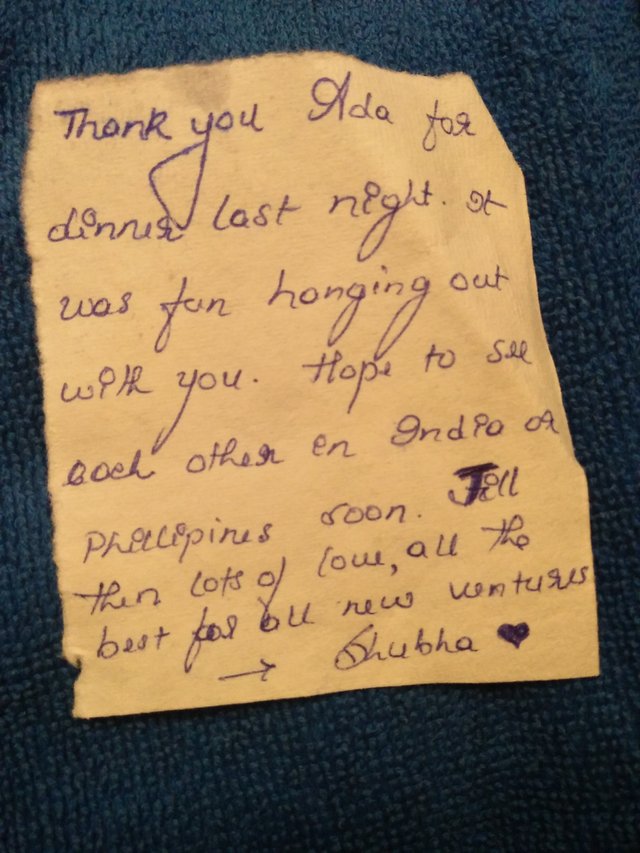 Thank you Ada for
dinner last night. It
was fun hanging out
with you. Hope to see
each other in India or
Phillipines soon. Till
then lots of love, all the
best for all new ventures
→ Shubha ♥